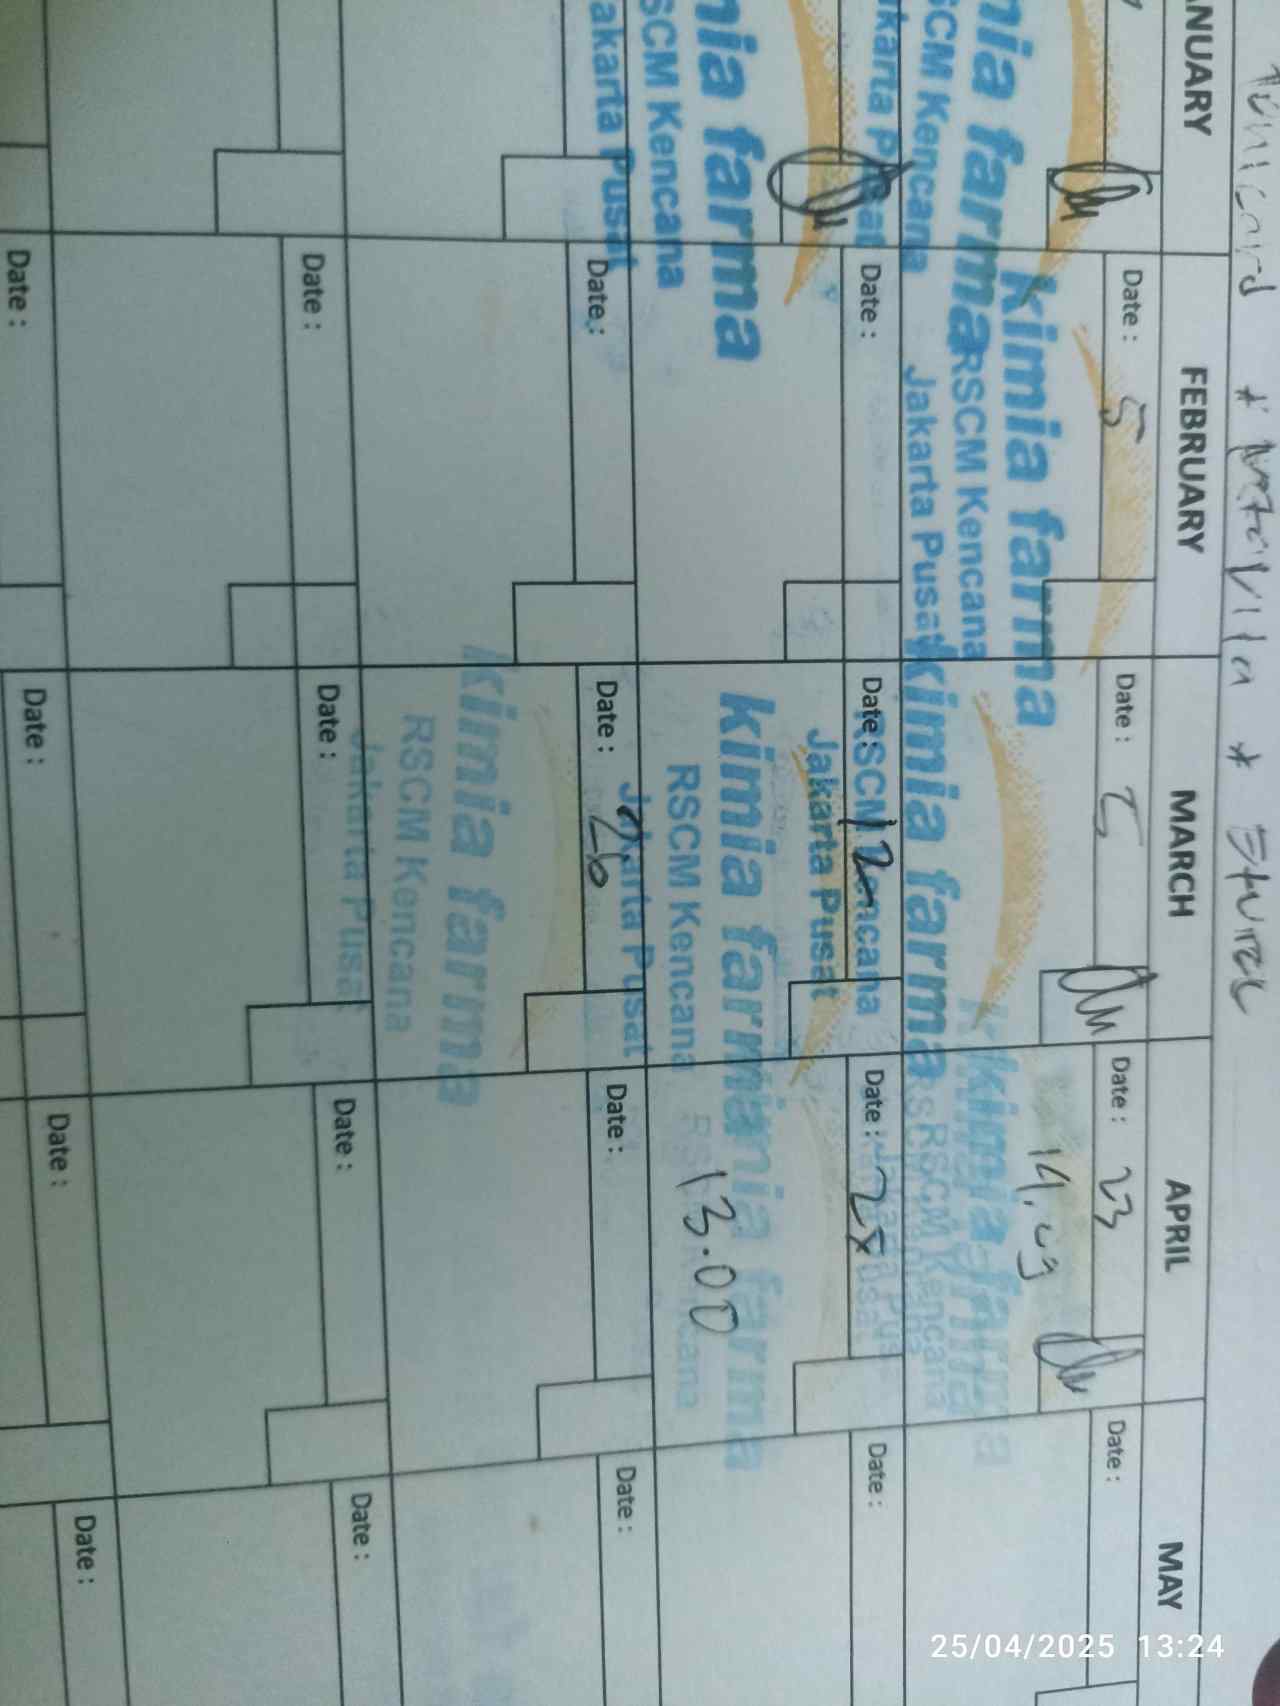 ANUARY FEBRUARY MARCH APRIL MAY
Date : 5
Date : 5
Date : 23
Date :
14.09
nia farma
SCM Kencana
akarta Pusat
kimia farma
RSCM Kencana
Jakarta Pusat
kimia farma
RSCM Kencana
Jakarta Pusat
kimia farma
RSCM Kencana
Date :
Date : 12
Date : 25
Date :
13.00
nia farma
SCM Kencana
akarta Pusat
kimia farma
RSCM Kencana
Jakarta Pusat
nia farma
Date :
Date : 26
Date :
Date :
kimia farma
RSCM Kencana
Jakarta Pusat
Date :
Date :
Date :
Date :
Date :
Date :
Date :
Date :
25/04/2025 13:24